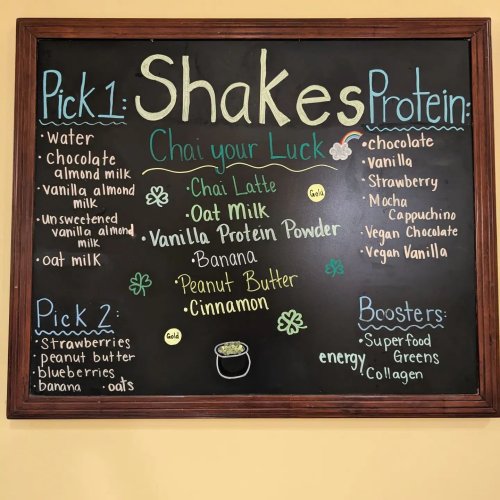 Shakes
Pick 1:
• Water
• Chocolate
almond milk
• vanilla almond
milk
• Unsweetened
vanilla almond
milk
• oat milk
Pick 2:
• Strawberries
• peanut butter
• blueberries
• banana • oats
Chai your Luck
• Chai Latte
• Oat Milk
• Vanilla Protein Powder
• Banana
• Peanut Butter
• Cinnamon
Gold
Gold
Protein:
• chocolate
• Vanilla
• Strawberry
• Mocha
Cappuchino
• Vegan Chocolate
• Vegan Vanilla
Boosters:
• Superfood
energy Greens
• Collagen